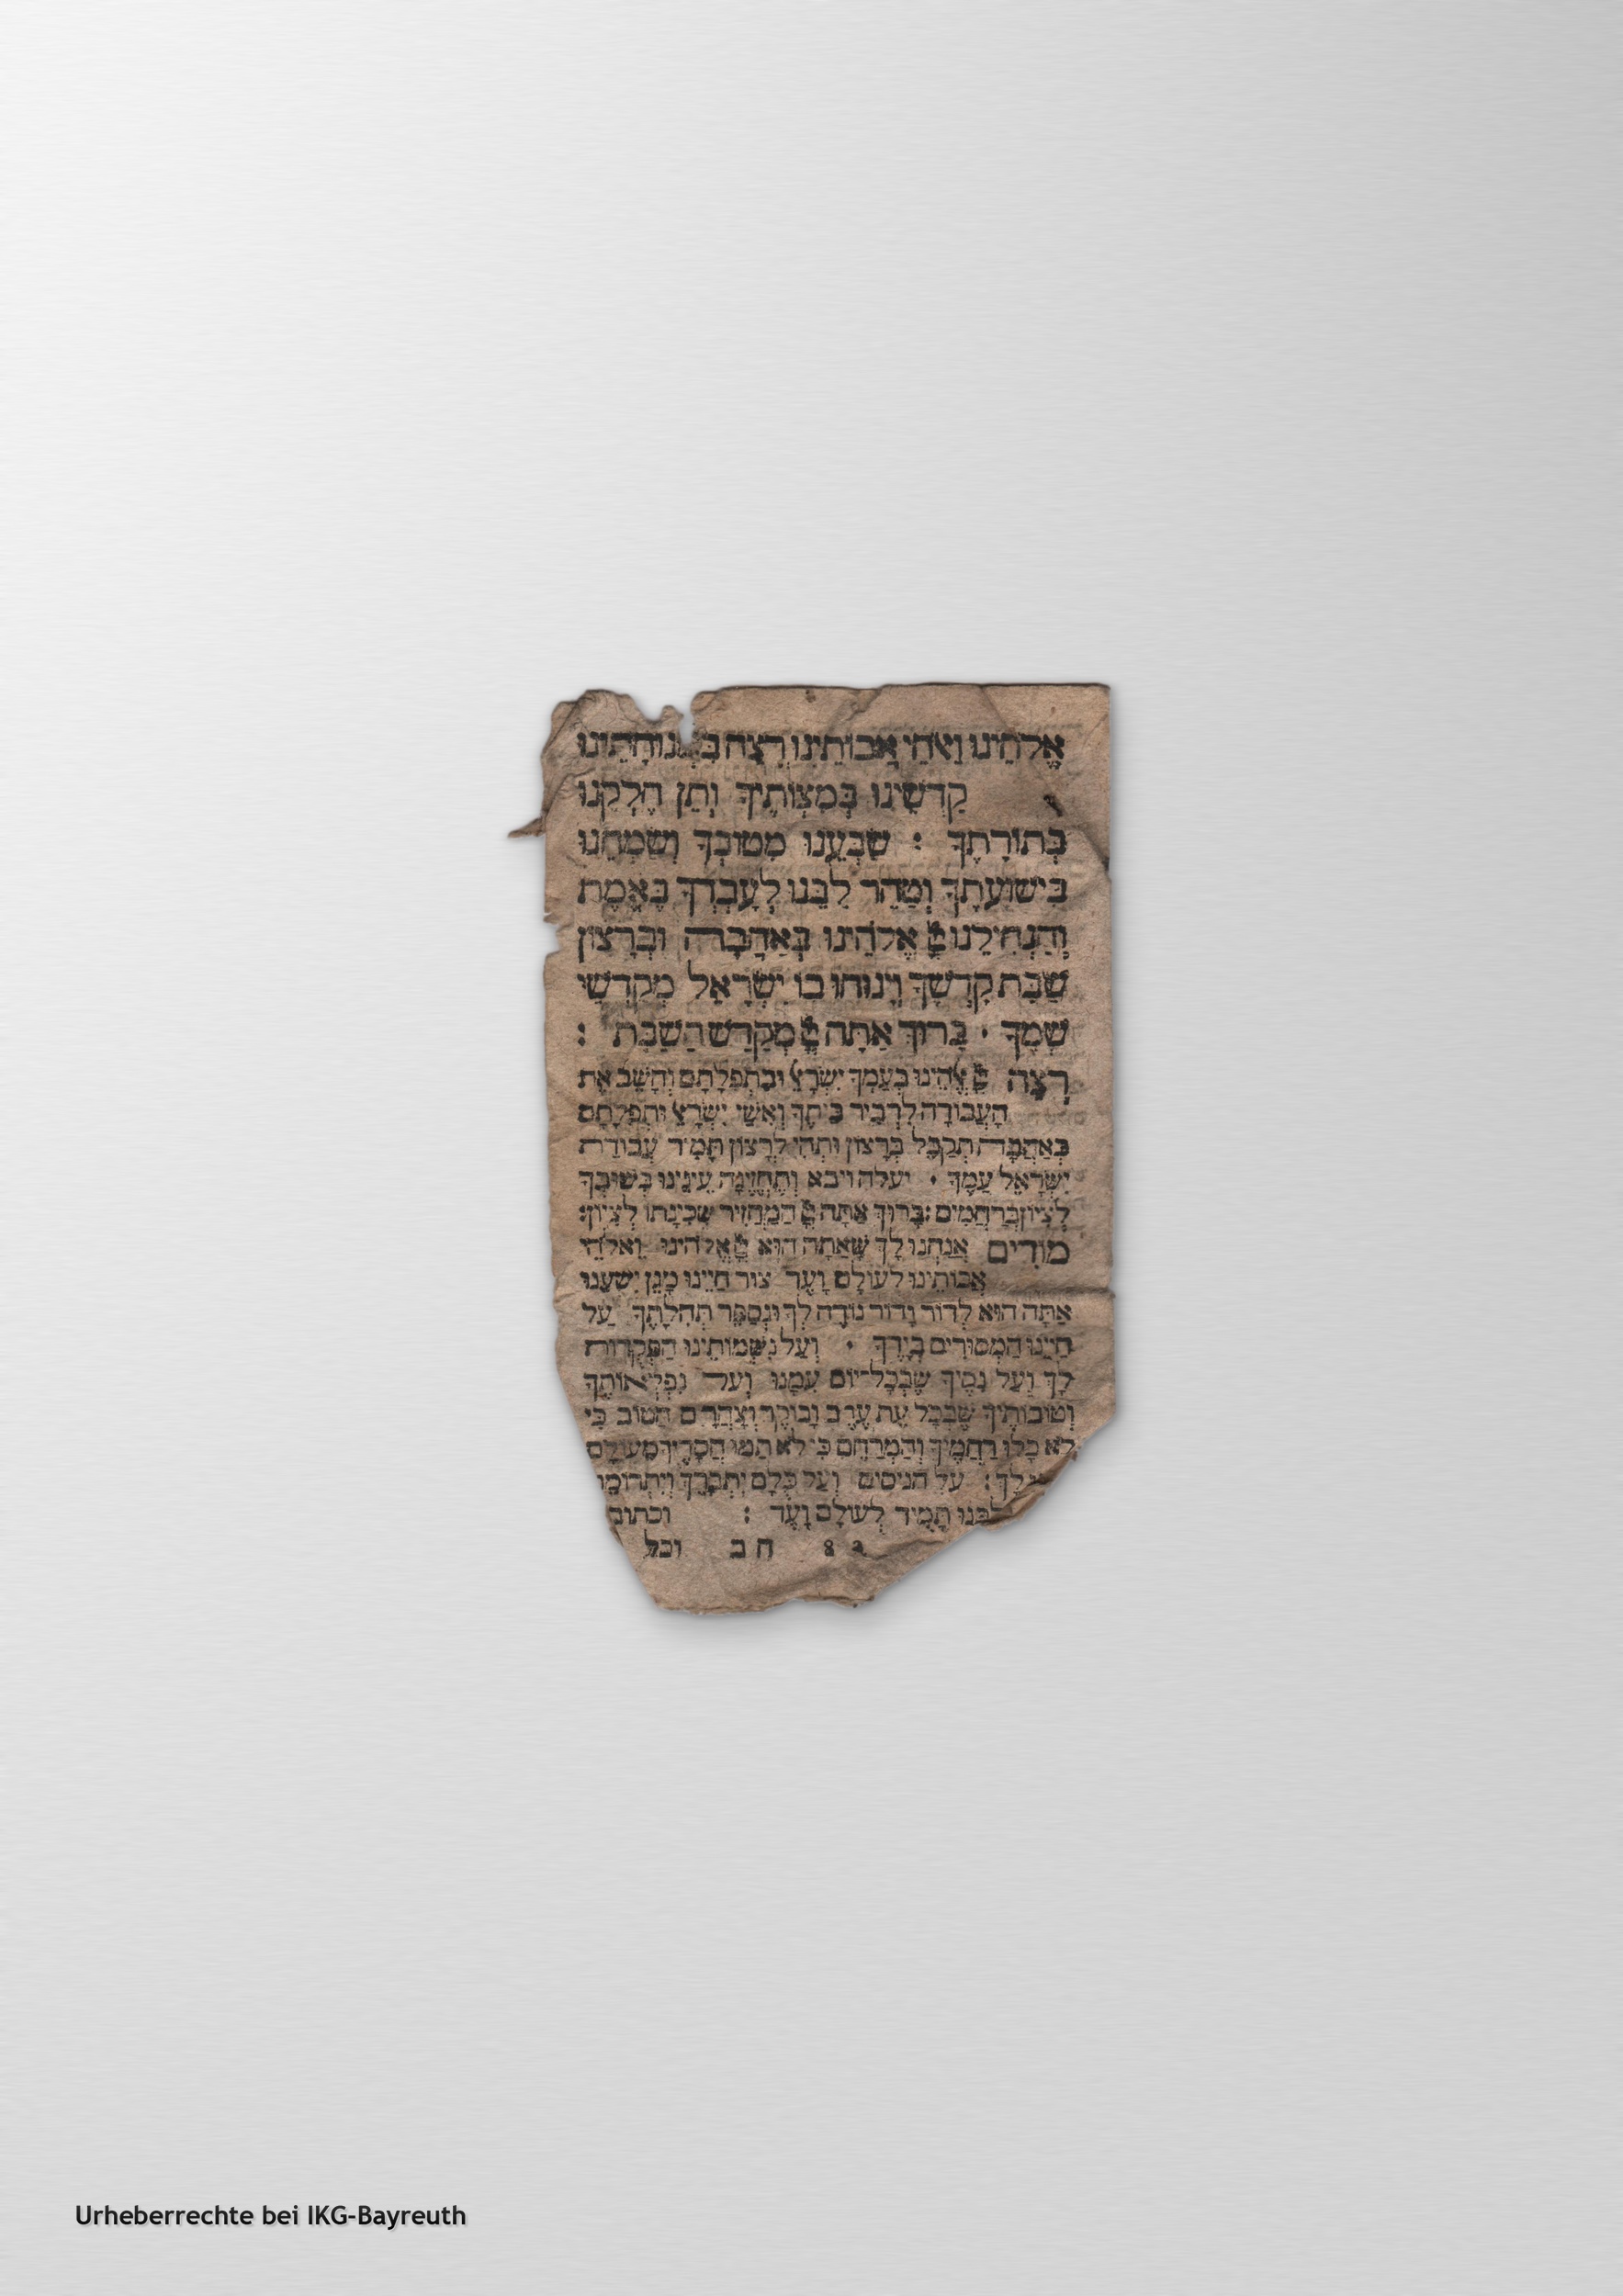 אֱלֹהֵינוּ וֵאלֹהֵי אֲבוֹתֵינוּ רְצֵה בִּמְנוּחָתֵינוּ
קַדְשֵׁינוּ בְּמִצְוֹתֶיךָ וְתֵן חֶלְקֵנוּ
בְּתוֹרָתֶךָ : שַׂבְּעֵנוּ מִטּוּבְךָ וְשַׂמְּחֵנוּ
בִּישׁוּעָתֶךָ וְטַהֵר לִבֵּנוּ לְעָבְדְּךָ בֶּאֱמֶת
וְהַנְחִילֵנוּ אֱלֹהֵינוּ בְּאַהֲבָה וּבְרָצוֹן
שַׁבַּת קָדְשֶׁךָ וְיָנוּחוּ בוֹ יִשְׂרָאֵל מְקַדְּשֵׁי
שְׁמֶךָ · בָּרוּךְ אַתָּה מְקַדֵּשׁ הַשַּׁבָּת :
רְצֵה אֱלֹהֵינוּ בְּעַמְּךָ יִשְׂרָאֵל וּבִתְפִלָּתָם וְהָשֵׁב אֶת
הָעֲבוֹדָה לִדְבִיר בֵּיתֶךָ וְאִשֵּׁי יִשְׂרָאֵל וּתְפִלָּתָם
בְּאַהֲבָה תְקַבֵּל בְּרָצוֹן וּתְהִי לְרָצוֹן תָּמִיד עֲבוֹדַת
יִשְׂרָאֵל עַמֶּךָ · יעלה ויבא וְתֶחֱזֶינָה עֵינֵינוּ בְּשׁוּבְךָ
לְצִיּוֹן בְּרַחֲמִים : בָּרוּךְ אַתָּה הַמַּחֲזִיר שְׁכִינָתוֹ לְצִיּוֹן :
מוֹדִים אֲנַחְנוּ לָךְ שָׁאַתָּה הוּא אֱלֹהֵינוּ וֵאלֹהֵי
אֲבוֹתֵינוּ לְעוֹלָם וָעֶד צוּר חַיֵּינוּ מָגֵן יִשְׁעֵנוּ
אַתָּה הוּא לְדוֹר וָדוֹר נוֹדֶה לְּךָ וּנְסַפֵּר תְּהִלָּתֶךָ עַל
חַיֵּינוּ הַמְּסוּרִים בְּיָדֶךָ · וְעַל נִשְׁמוֹתֵינוּ הַפְּקֻדוֹת
לָךְ וְעַל נִסֶּיךָ שֶׁבְּכָל־יוֹם עִמָּנוּ וְעַל נִפְלְאוֹתֶיךָ
וְטוֹבוֹתֶיךָ שֶׁבְּכָל עֵת עֶרֶב וָבוֹקֶר וְצָהֳרָיִם הַטּוֹב כִּי
לֹא כָלוּ רַחֲמֶיךָ וְהַמְרַחֵם כִּי לֹא תַמּוּ חֲסָדֶיךָ מֵעוֹלָם
לָךְ : על הניסים וְעַל כֻּלָּם יִתְבָּרַךְ וְיִתְרוֹמַם
תָּמִיד לְעוֹלָם וָעֶד : וכתוב
ח ב וכל
Urheberrechte bei IKG-Bayreuth